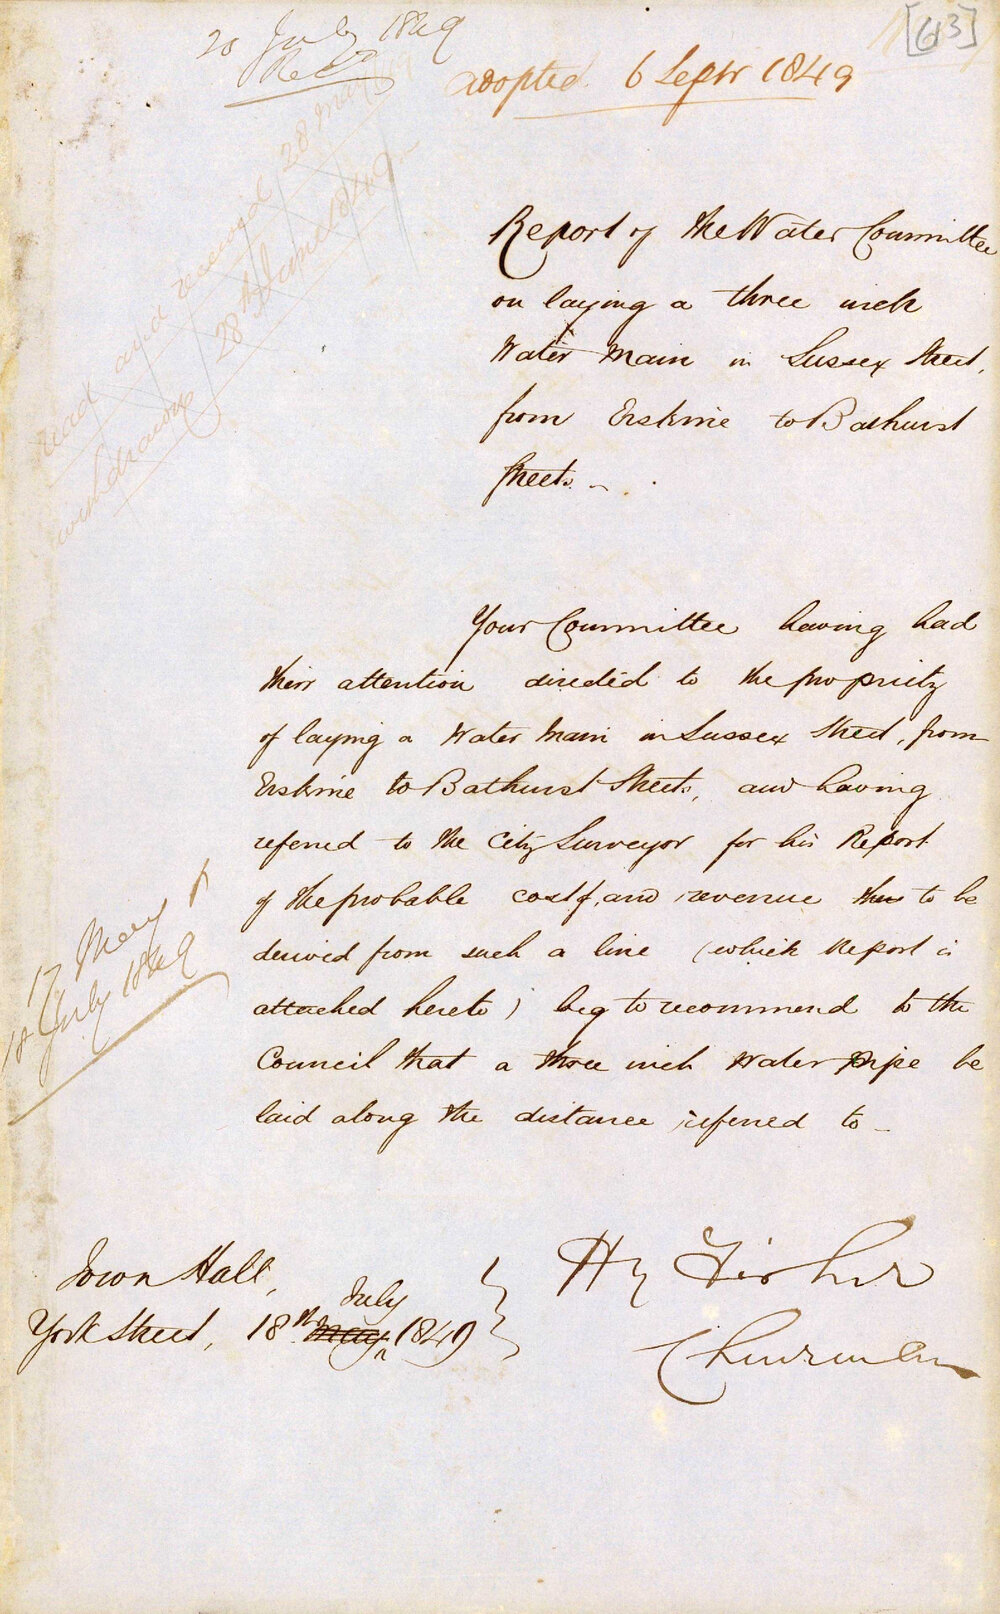 [63]
20 July 1849
Recd
adopted 6 Septr 1849
read and received 28 May
withdrawn 28th June 1849
Report of the Water Committee
on laying a three inch
Water Main in Sussex Street,
from Erskine to Bathurst
Streets.
Your Committee having had
their attention directed to the propriety
of laying a Water Main in Sussex Street, from
Erskine to Bathurst Streets, and having
referred to the City Surveyor for his Report
of the probable cost of, and revenue to be
derived from such a line (which Report is
attached hereto) beg to recommend to the
Council that a three inch Water pipe be
laid along the distance referred to -
17 May
18 July 1849
Town Hall,
York Street, 18th May July 1849
Hy Fisher
Chairman